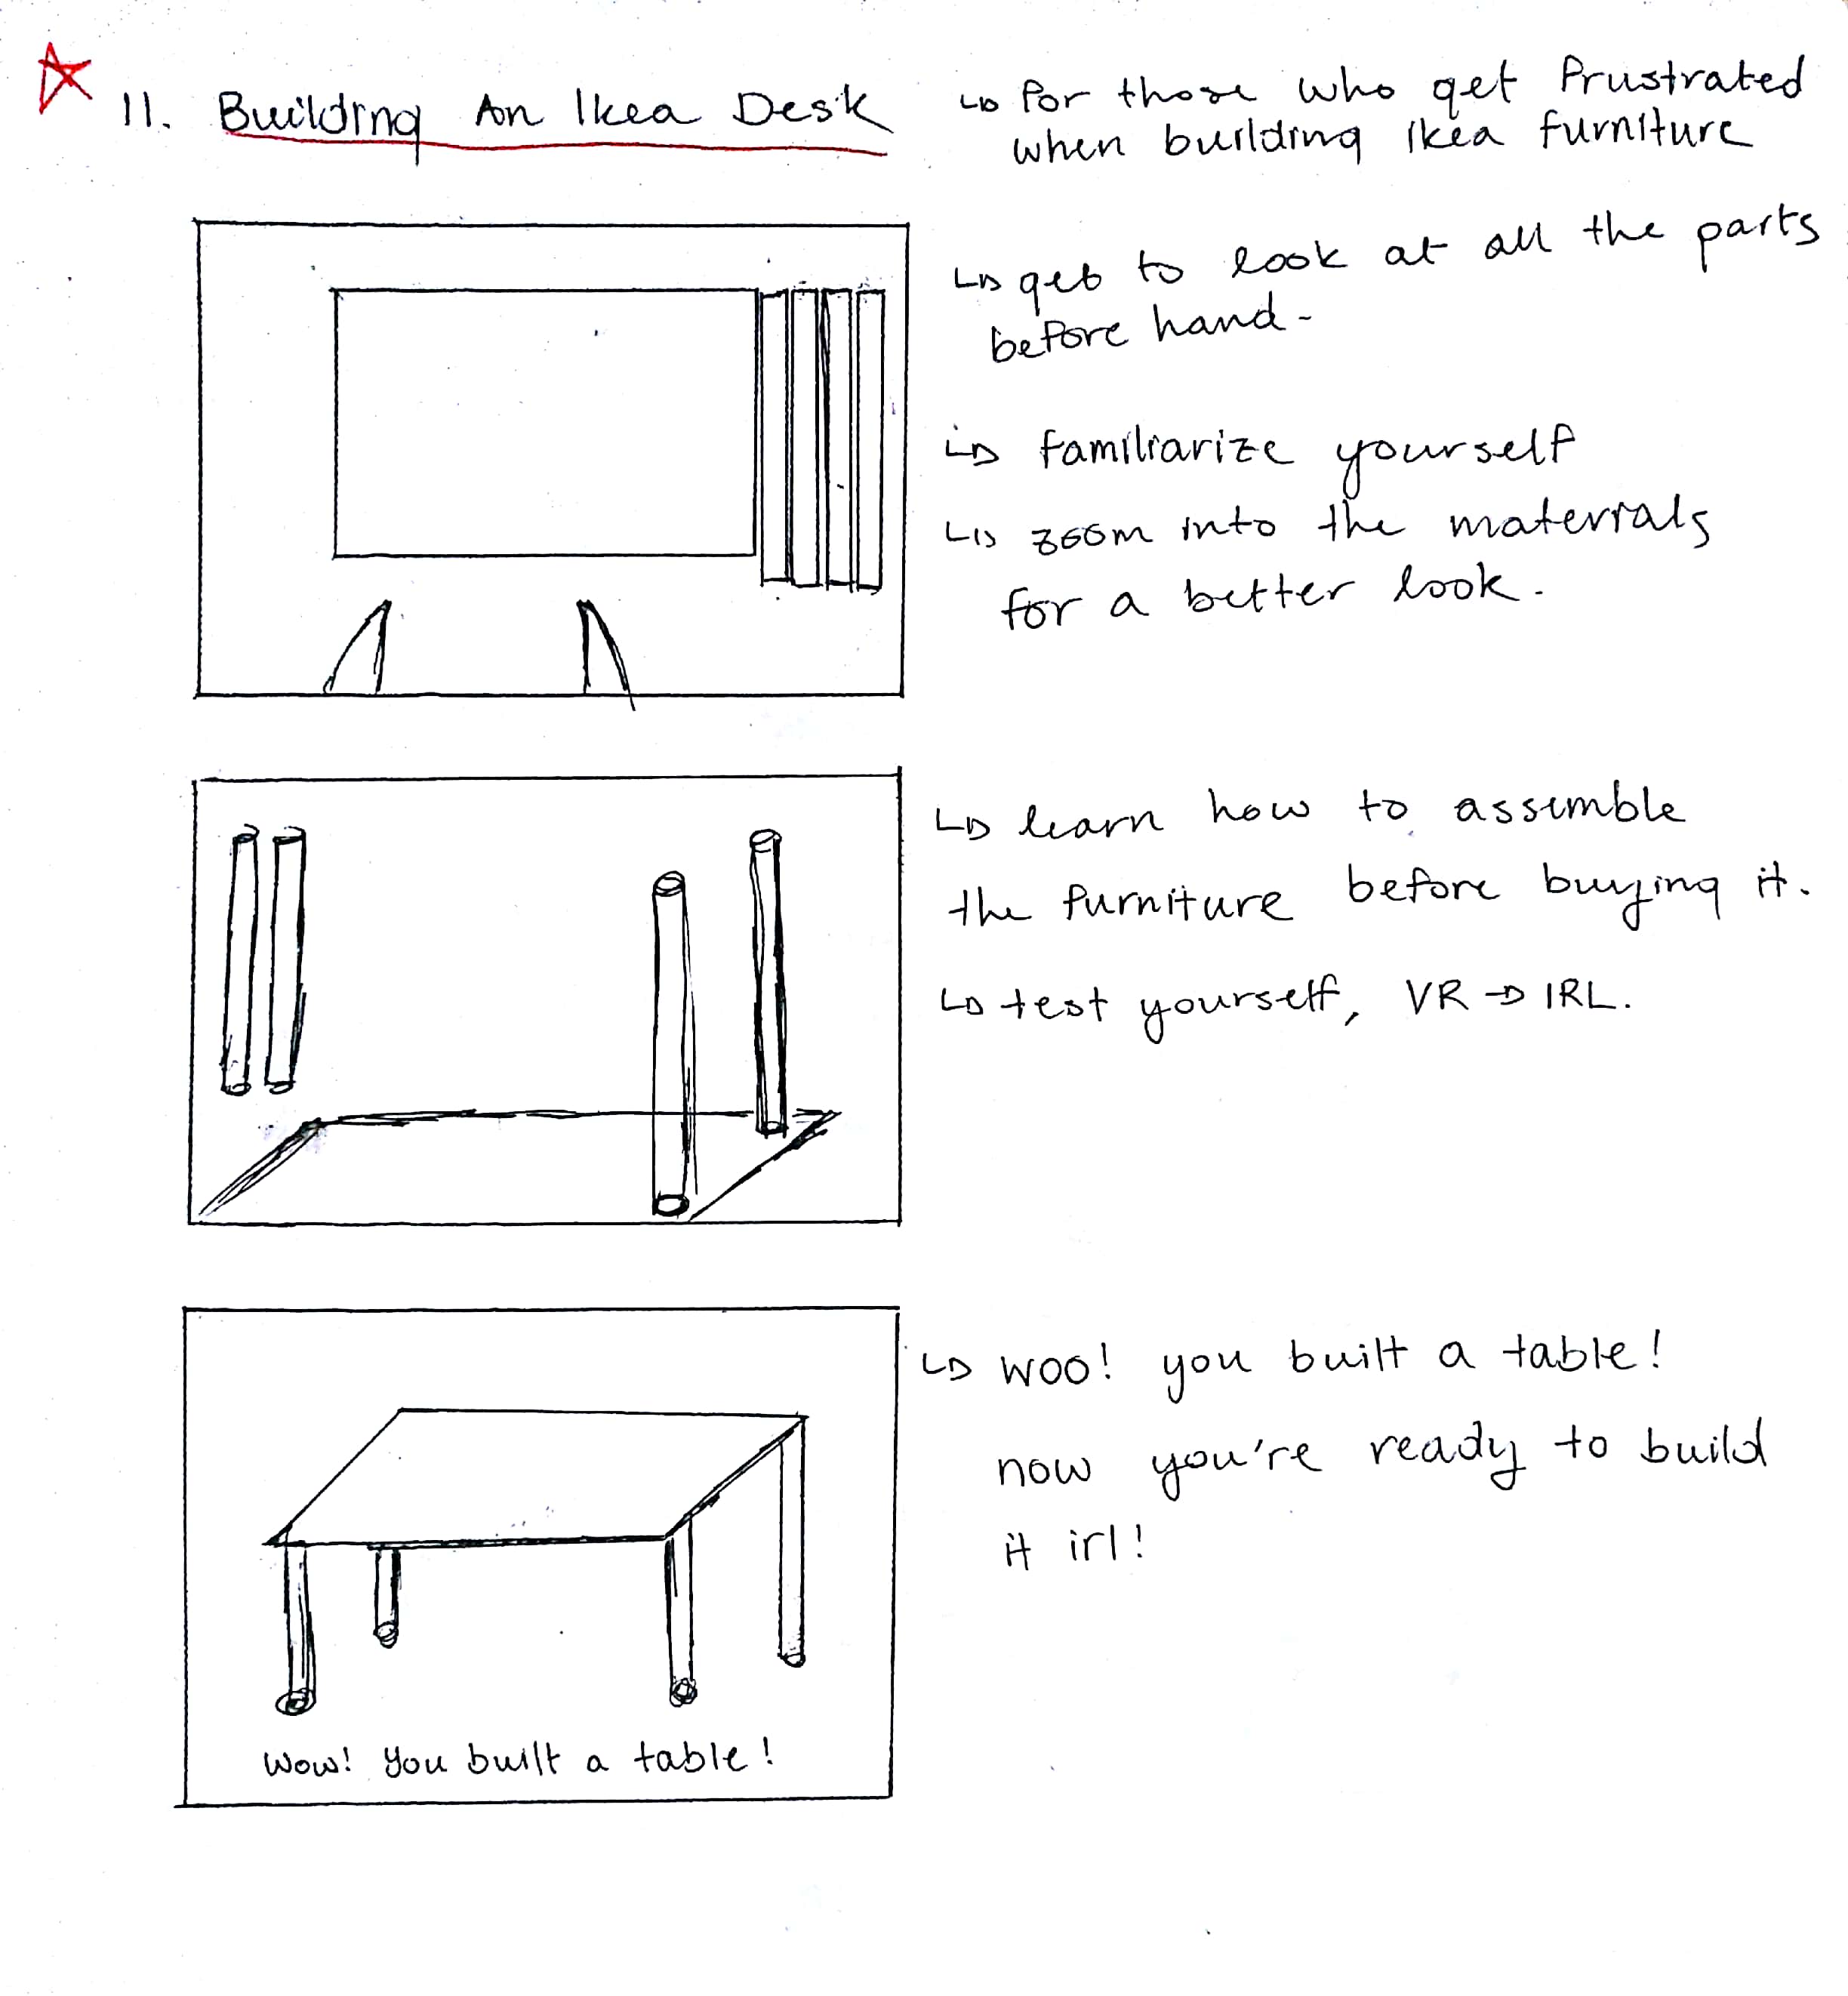 11. Building An Ikea Desk
↳ for those who get frustrated
when building Ikea furniture
↳ get to look at all the parts
before hand -
↳ familiarize yourself
↳ zoom into the materials
for a better look.
↳ learn how to assemble
the furniture before buying it.
↳ test yourself, VR → IRL.
↳ woo! you built a table!
now you're ready to build
it irl!
Wow! You built a table!